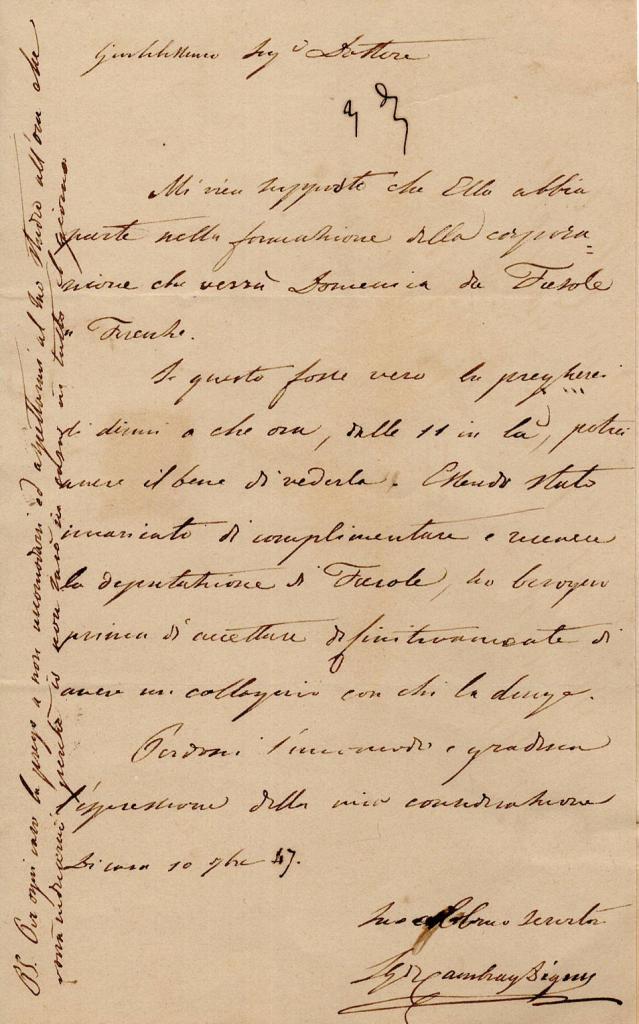 Sigr Dottore
Mi vien supposto che Ella abbia
parte nella formazione della corpora=
zione che verrà Domenica da Fiesole
a Firenze.
Se questo fosse vero la pregherei
di dirmi a che ora, dalle 11 in là, potrei
avere il bene di vederla. Essendo stato
incaricato di complimentare e ricevere
la deputazione di Fiesole, ho bisogno
prima di accettare definitivamente di
avere un colloquio con chi la dirige.
Perdoni l'incomodo e gradisca
l'espressione della mia considerazione
Di casa 10 7bre 47.
Suo Servitor
Cambray Digny
PS. Per ogni caso la prego a non incomodarsi ed aspettarmi al suo studio all'ora che
vorrà indicarmi perché io non sarò in casa in tutto il giorno.